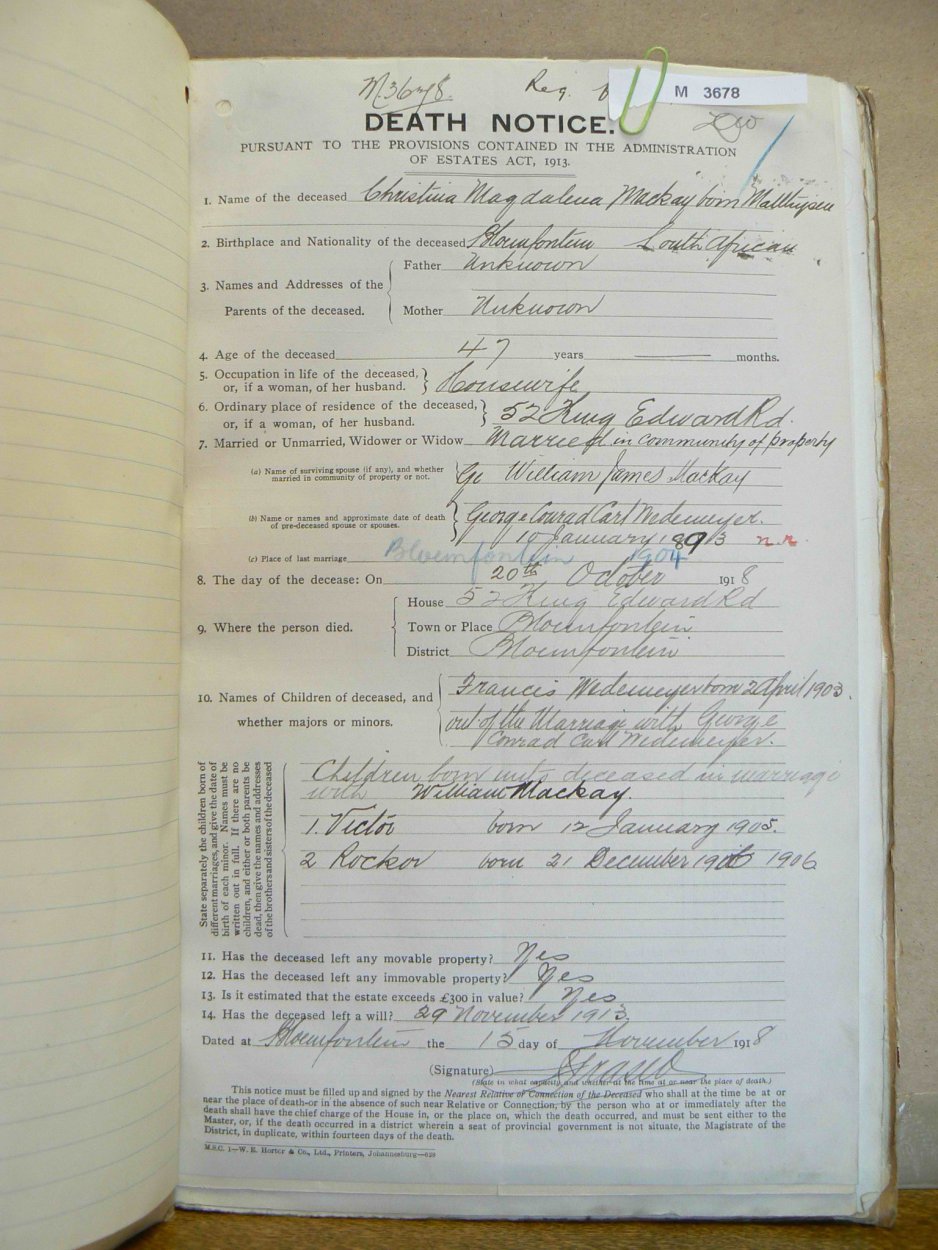 M3678. Reg.
M 3678
DEATH NOTICE.
PURSUANT TO THE PROVISIONS CONTAINED IN THE ADMINISTRATION
OF ESTATES ACT, 1913.
1. Name of the deceased Christina Magdalena Mackay born Matthysen
2. Birthplace and Nationality of the deceased Bloemfontein South African
3. Names and Addresses of the Parents of the deceased.
Father Unknown
Mother Unknown
4. Age of the deceased 47 years — months.
5. Occupation in life of the deceased, or, if a woman, of her husband. } Housewife
6. Ordinary place of residence of the deceased, or, if a woman, of her husband. } 52 King Edward Rd.
7. Married or Unmarried, Widower or Widow Married in community of property
(a) Name of surviving spouse (if any), and whether married in community of property or not. } Ge William James Mackay
(b) Name or names and approximate date of death of pre-deceased spouse or spouses. } George Conrad Carl Wedemeyer.
10 January 1903 n.r.
(c) Place of last marriage Bloemfontein 1904
8. The day of the decease: On 20th October 1918
9. Where the person died.
House 52 King Edward Rd
Town or Place Bloemfontein
District Bloemfontein
10. Names of Children of deceased, and whether majors or minors.
Francis Wedemeyer born 2 April 1903.
out of the Marriage with George
Conrad Carl Wedemeyer.
State separately the children born of
different marriages, and give the date of
birth of each minor. Names must be
written out in full. If there are no
children, and either or both parents be
dead, then give the names and addresses
of the brothers and sisters of the deceased
Children born unto deceased in marriage
with William Mackay.
1. Victor born 12 January 1905.
2 Rockor born 21 December 1906 1906
11. Has the deceased left any movable property? Yes
12. Has the deceased left any immovable property? Yes
13. Is it estimated that the estate exceeds £300 in value? Yes
14. Has the deceased left a will? 29 November 1913.
Dated at Bloemfontein the 15 day of November 1918
(Signature)
(State in what capacity and whether at the time at or near the place of death.)
This notice must be filled up and signed by the Nearest Relative or Connection of the Deceased who shall at the time be at or
near the place of death—or in the absence of such near Relative or Connection, by the person who at or immediately after the
death shall have the chief charge of the House in, or the place on, which the death occurred, and must be sent either to the
Master, or, if the death occurred in a district wherein a seat of provincial government is not situate, the Magistrate of the
District, in duplicate, within fourteen days of the death.
M.S.C. 1—W. E. Hortor & Co., Ltd., Printers, Johannesburg—628